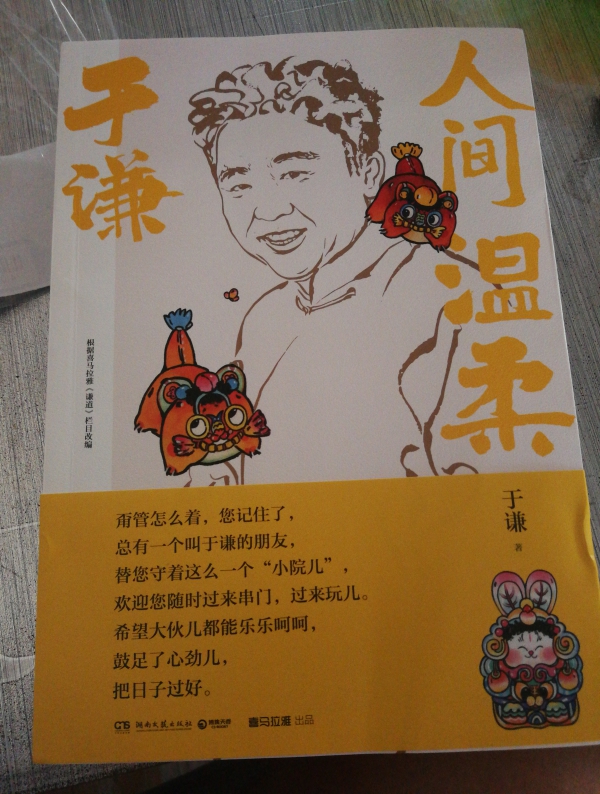 于谦
人间温柔
根据喜马拉雅《谦道》栏目改编
甭管怎么着，您记住了，
总有一个叫于谦的朋友，
替您守着这么一个“小院儿”，
欢迎您随时过来串门，过来玩儿。
希望大伙儿都能乐乐呵呵，
鼓足了心劲儿，
把日子过好。
于谦
著
湖南文艺出版社
博集天卷
喜马拉雅 出品